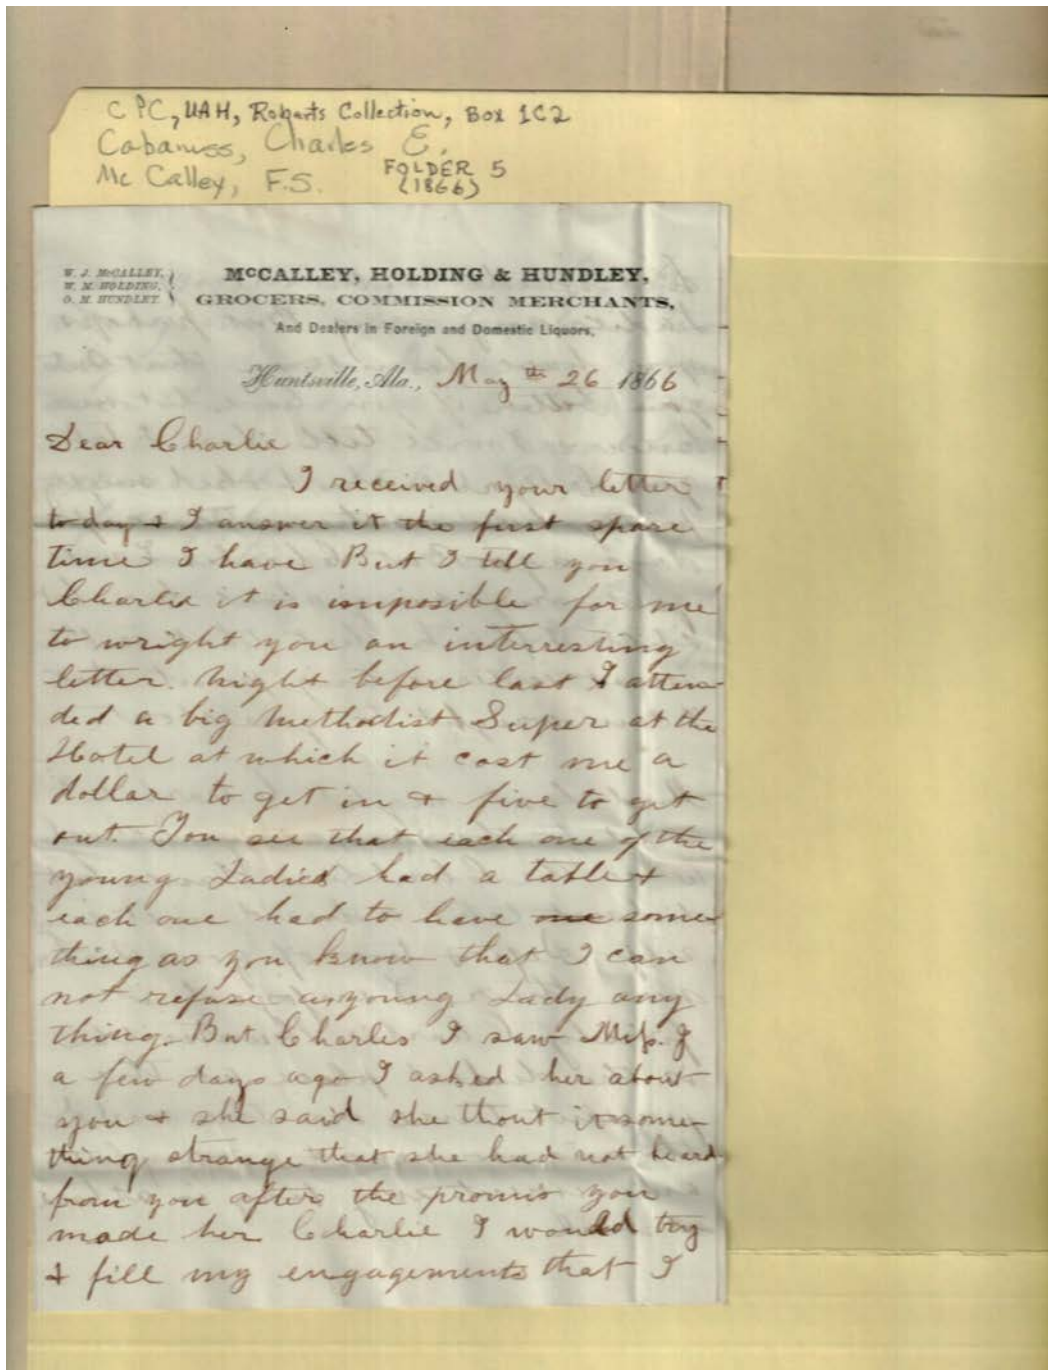 CPC, UAH, Roberts Collection, Box 1C2
Cabaniss, Charles E.
McCalley, F.S. FOLDER 5
(1866)
W. J. McCALLEY,
W. M. HOLDING,
O. M. HUNDLEY.
McCALLEY, HOLDING & HUNDLEY,
GROCERS, COMMISSION MERCHANTS,
And Dealers in Foreign and Domestic Liquors,
Huntsville, Ala., May th 26 1866
Dear Charlie
I received your letter
to day & I answer it the first spare
time I have But I tell you
Charlie it is imposible for me
to wright you an interresting
letter. Night before last I atten-
ded a big Methodist Super at the
Hotel at which it cost me a
dollar to get in & five to get
out. You see that each one of the
young Ladies had a table &
each one had to have me some
thing as you know that I can
not refuse a young Lady any
thing. But Charles I saw Miss. J
a few days ago I asked her about
you & she said she thout it some-
thing strange that she had not heard
from you after the promis you
made her Charlie I would try
& fill my engagements that I